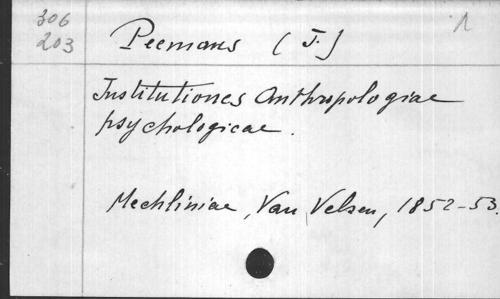 306
203
Peemans (J.)
1
Institutiones Anthropologiae
psychologicae.
Mechliniae, Van Velsen, 1852-53.